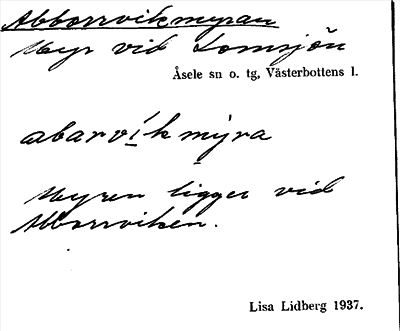 Abborrvikmyran
Myr vid Lomsjön
Åsele sn o. tg, Västerbottens l.
abarvík mýra
Myren ligger vid
Abborrviken.
Lisa Lidberg 1937.